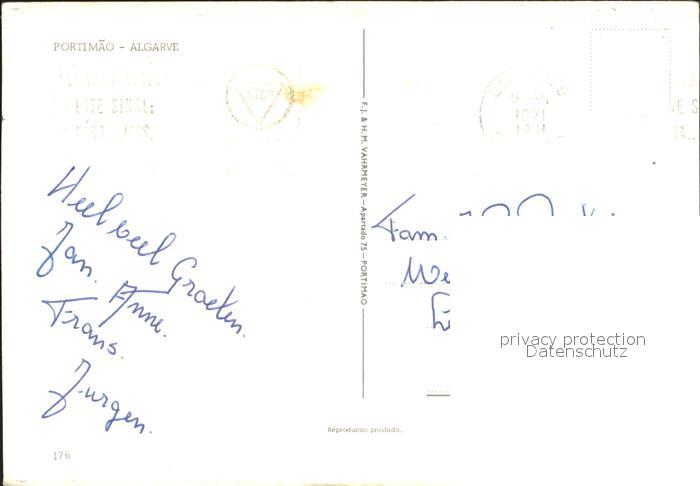 PORTIMÃO - ALGARVE
ESTE SINAL:
STOP
1971
F.J. & H.M. VAHRMEYER — Apartado 75 — PORTIMAO
Heel veel Groeten.
Jan. Anne.
Frans.
Jurgen.
Fam.
We
privacy protection
Datenschutz
Reproducao proibida.
176